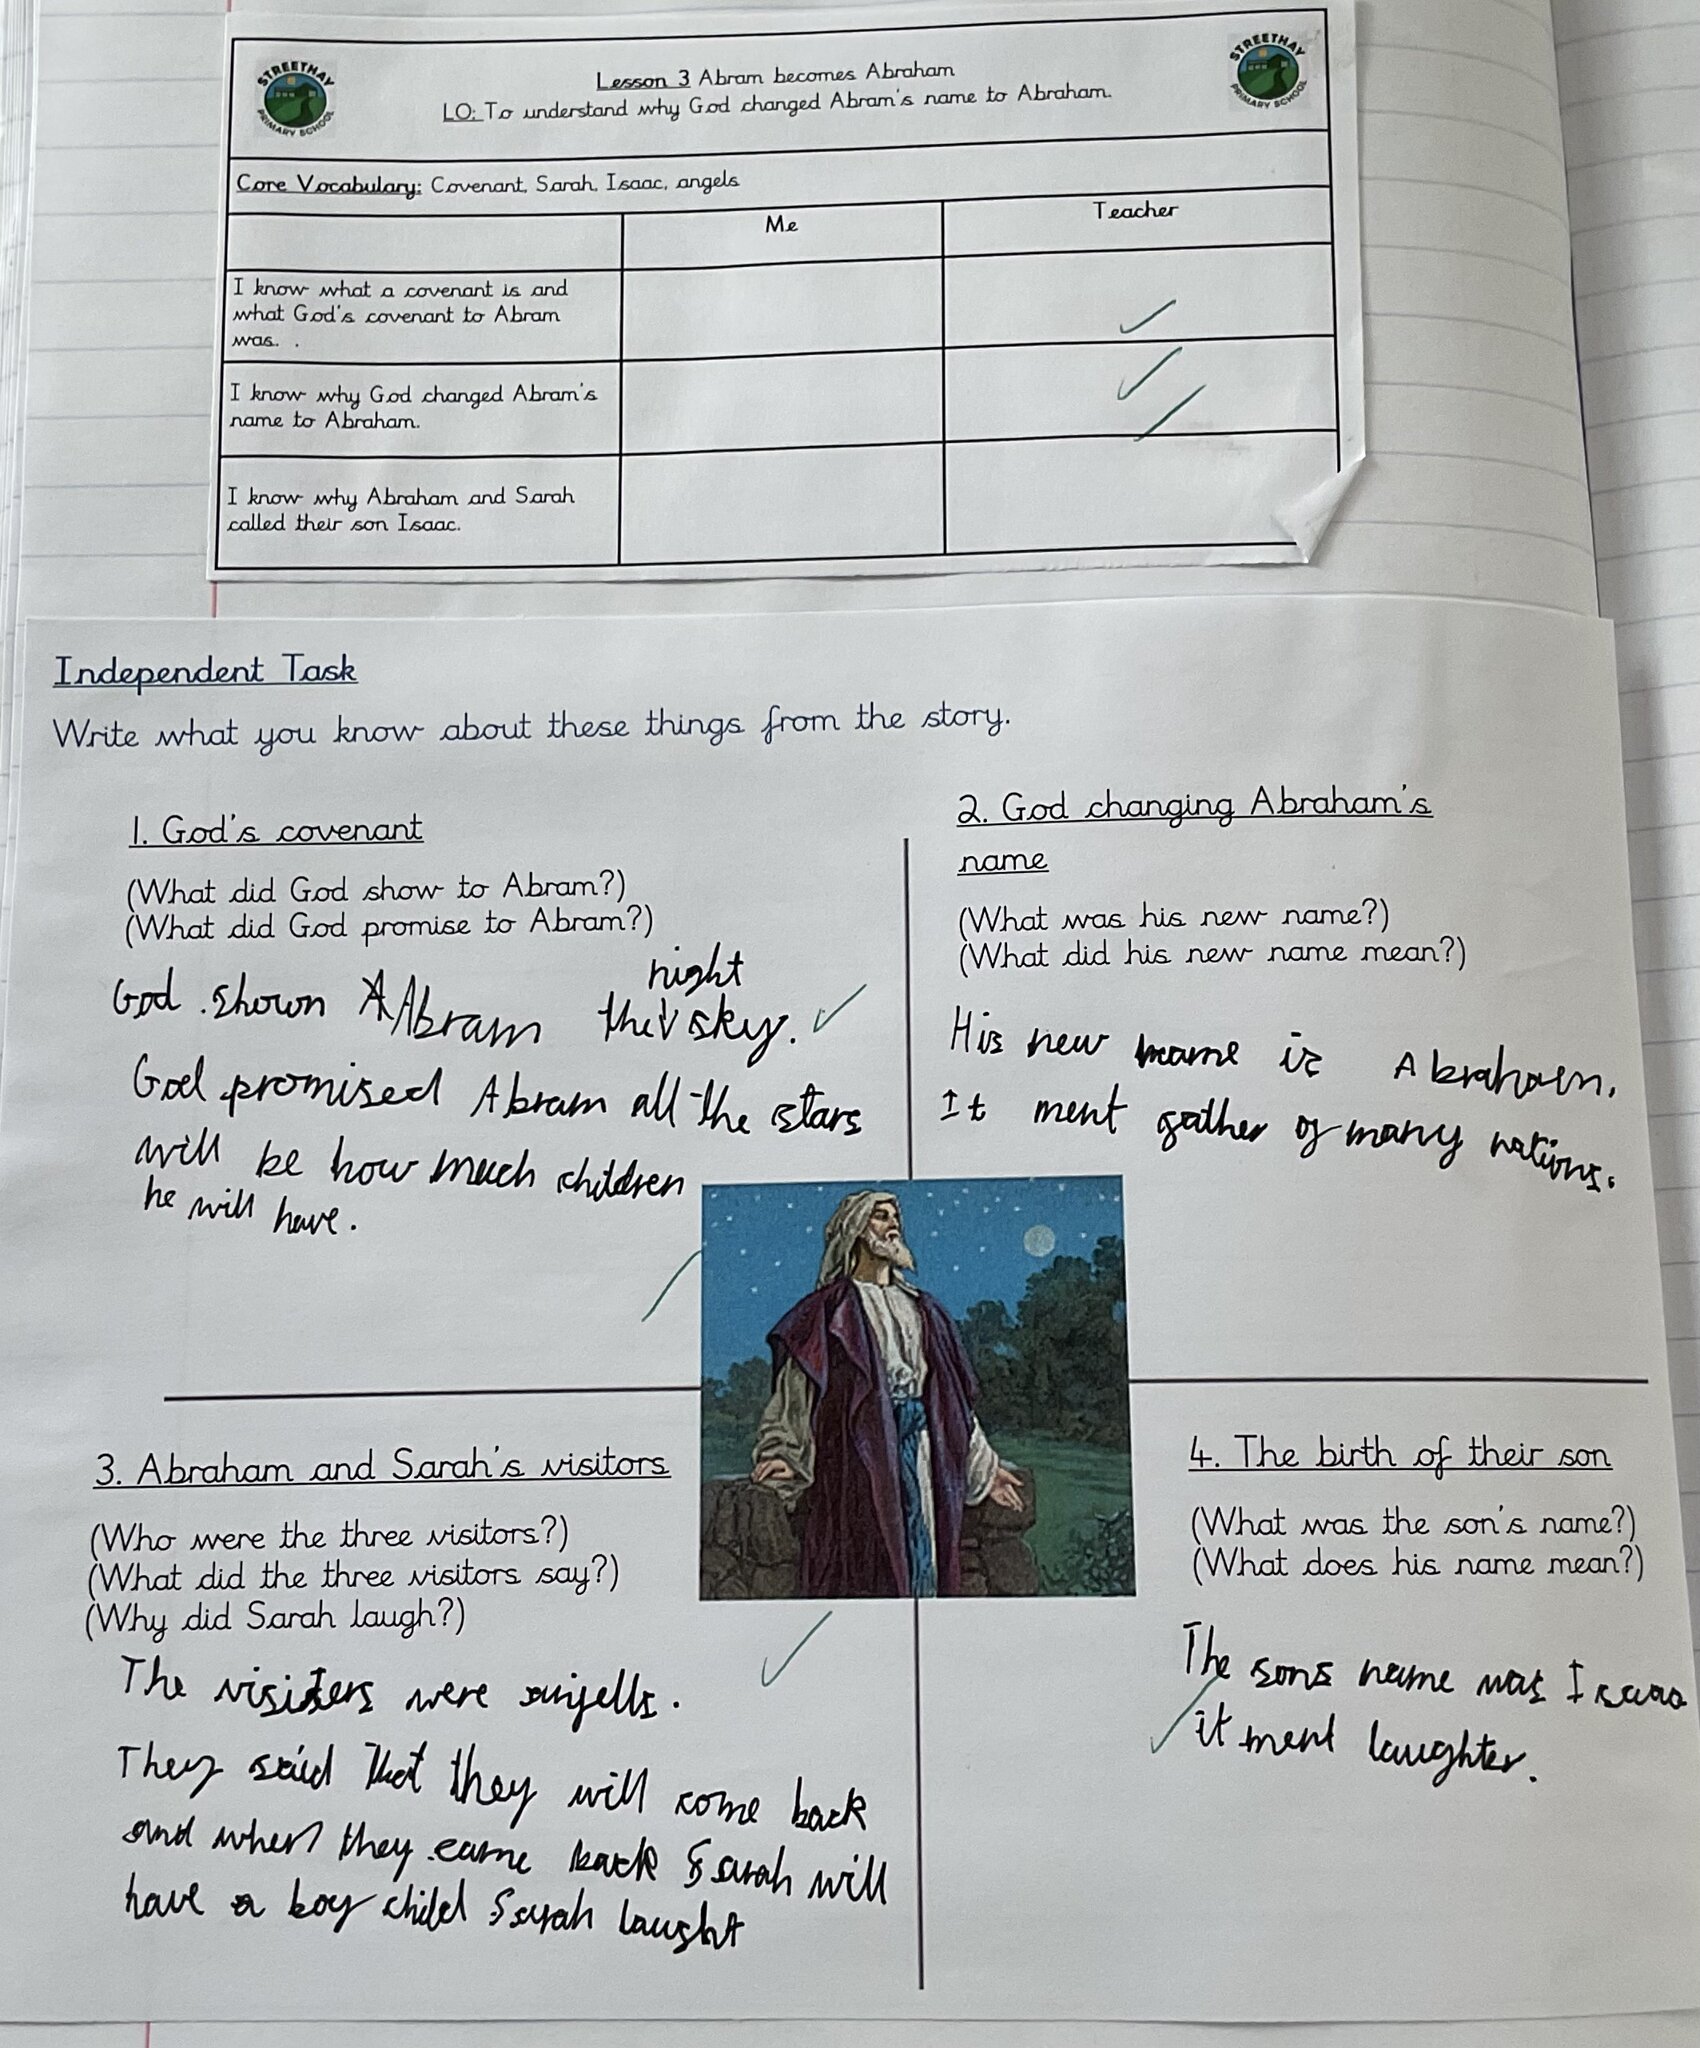 STREETHAY
PRIMARY SCHOOL
Lesson 3 Abram becomes Abraham
LO: To understand why God changed Abram's name to Abraham.
STREETHAY
PRIMARY SCHOOL
Core Vocabulary: Covenant, Sarah, Isaac, angels
Me
Teacher
I know what a covenant is and
what God's covenant to Abram
was. .
I know why God changed Abram's
name to Abraham.
I know why Abraham and Sarah
called their son Isaac.
Independent Task
Write what you know about these things from the story.
1. God's covenant
(What did God show to Abram?)
(What did God promise to Abram?)
night
God shown Abram the sky.
God promised Abram all the stars
will be how much children
he will have.
2. God changing Abraham's
name
(What was his new name?)
(What did his new name mean?)
His new name is Abraham.
It ment father of many nations.
3. Abraham and Sarah's visitors
(Who were the three visitors?)
(What did the three visitors say?)
(Why did Sarah laugh?)
The visiters were anjells.
They said that they will come back
and when they came back Sarah will
have a boy child Sarah laught
4. The birth of their son
(What was the son's name?)
(What does his name mean?)
The sons name was
it ment laughter.